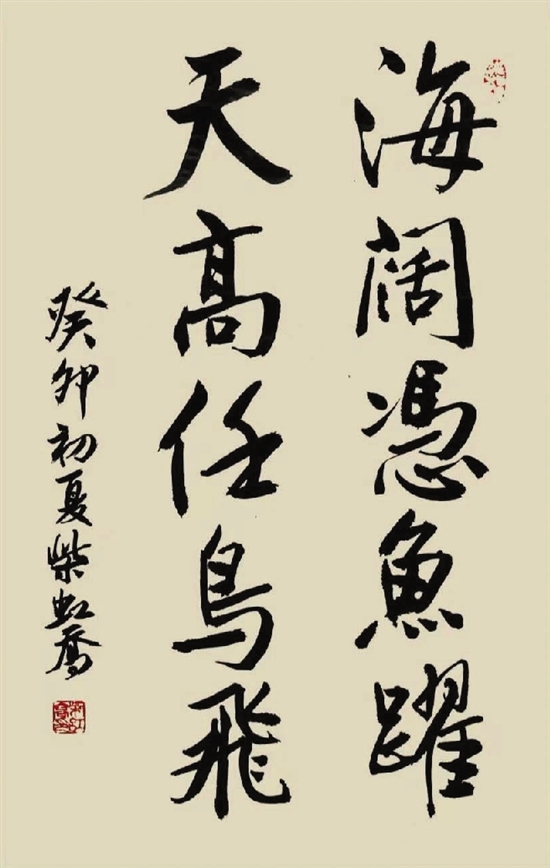 海闊憑魚躍
天高任鳥飛
癸卯初夏柴虹喬